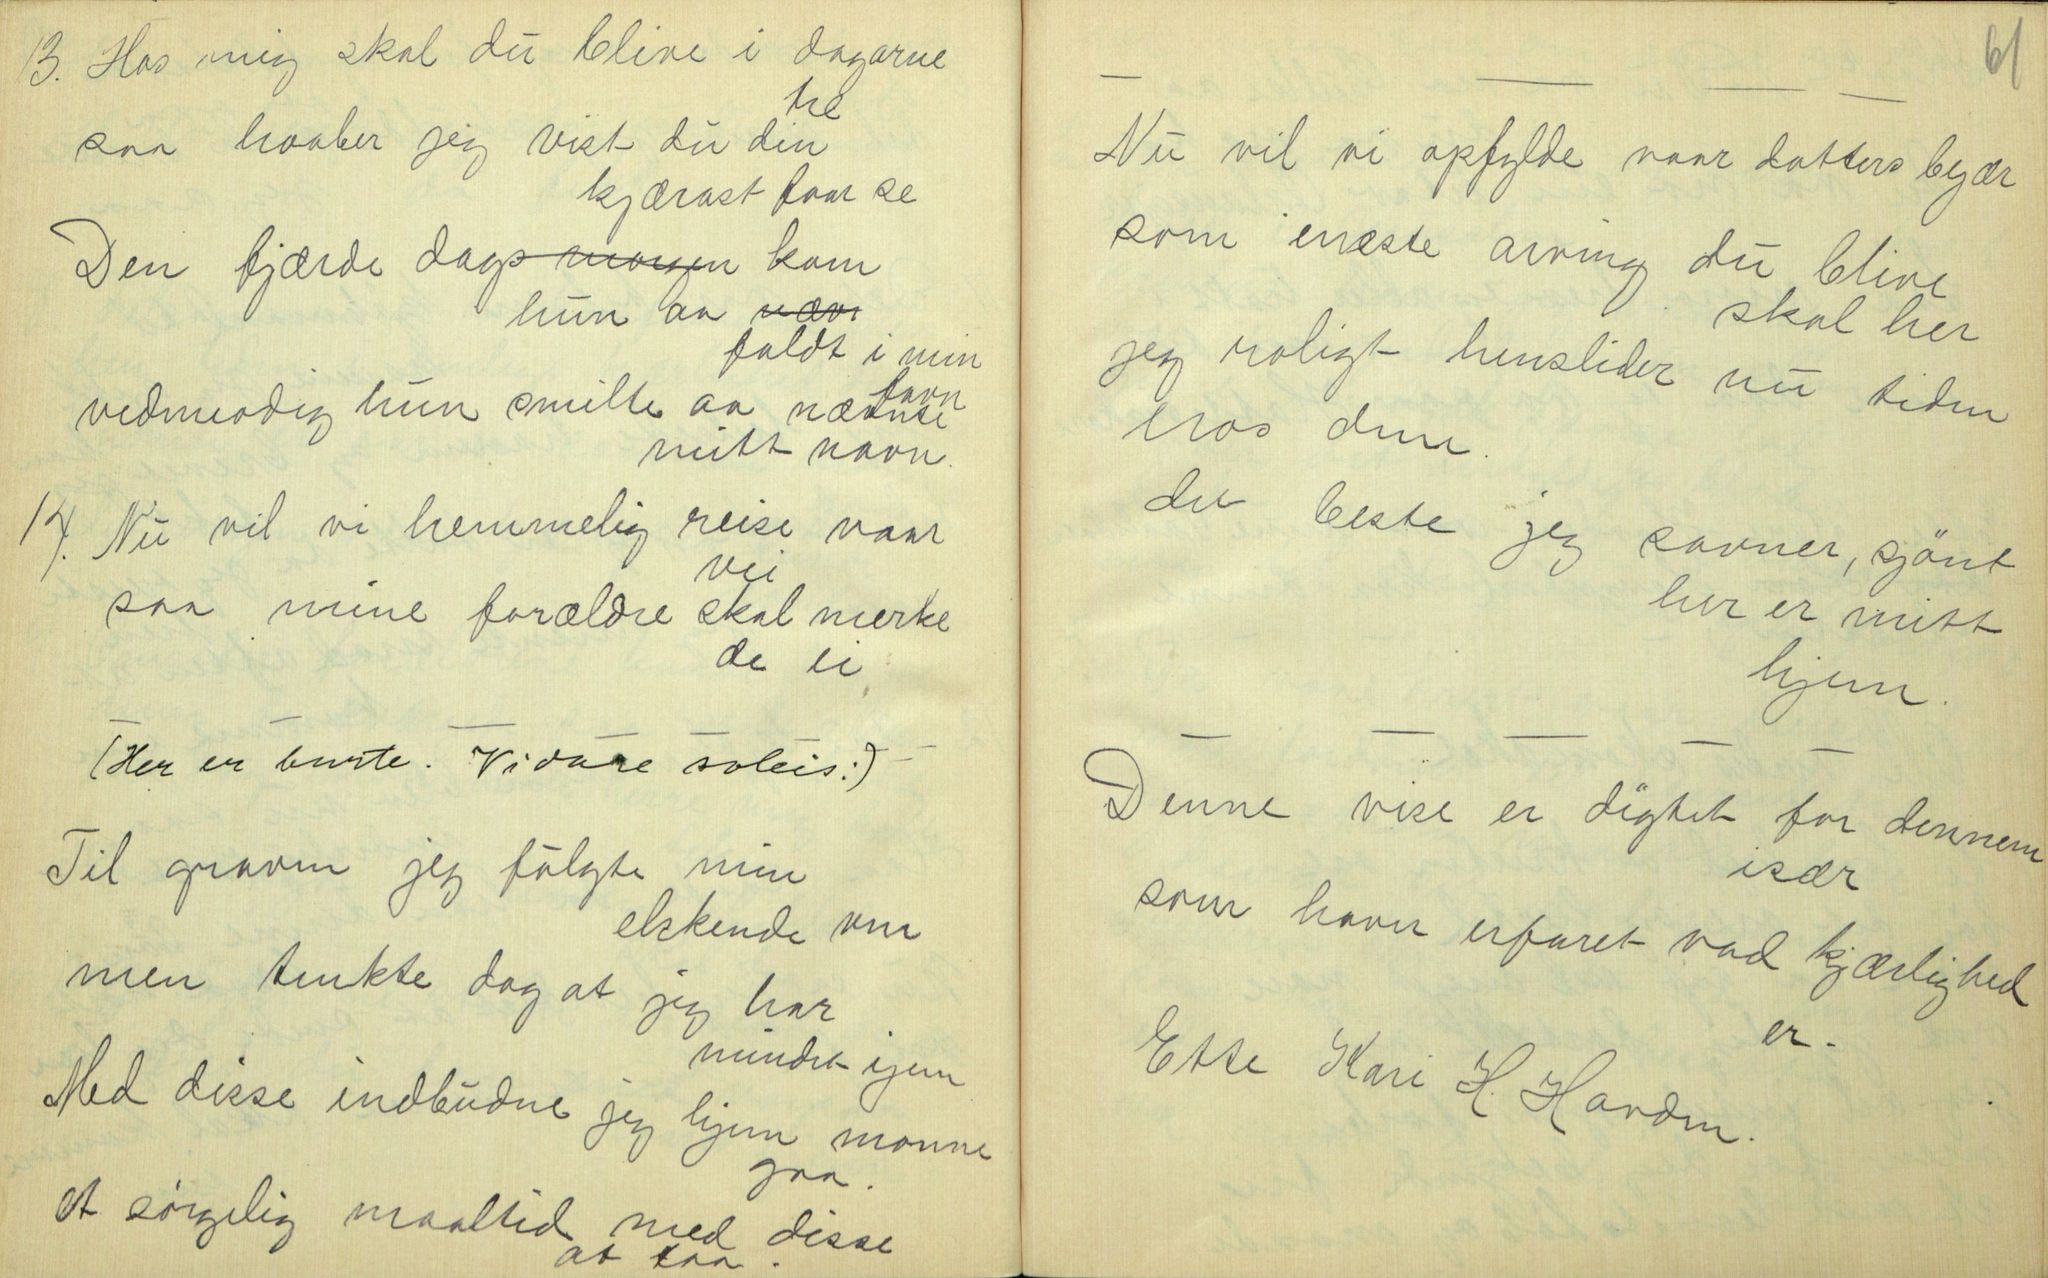 13. Hos mig skal du blive i dagarne
tre
saa haaber jeg vist du din
kjærast faar se
Den fjærde dags morgen kom
hun aa næv
faldt i min
favn
vedmodig hun smilte aa nævnte
mitt navn.
14. Nu vil vi hemmelig reise vaar
vei
saa mine forældre skal merke
de ei
(Her er burte. Vidare soleis:)
Til graven jeg fölgte min
elskende ven
men tenkte dog at jeg har
mindet igen
Med disse indbudne jeg hjem monne
gaa.
et sörgelig maaltid med disse
at taa.
61
Nu vil vi opfylde vaar datters begær
som eneste arving du blive
skal her
jeg roligt henslider nu tiden
hos dem.
det beste jeg savner, sjönt
her er mitt
hjem.
Denne vise er digtet for dennem
især
som haver erfaret vad kjærlighed
er.
Etter Kari H. Harden.